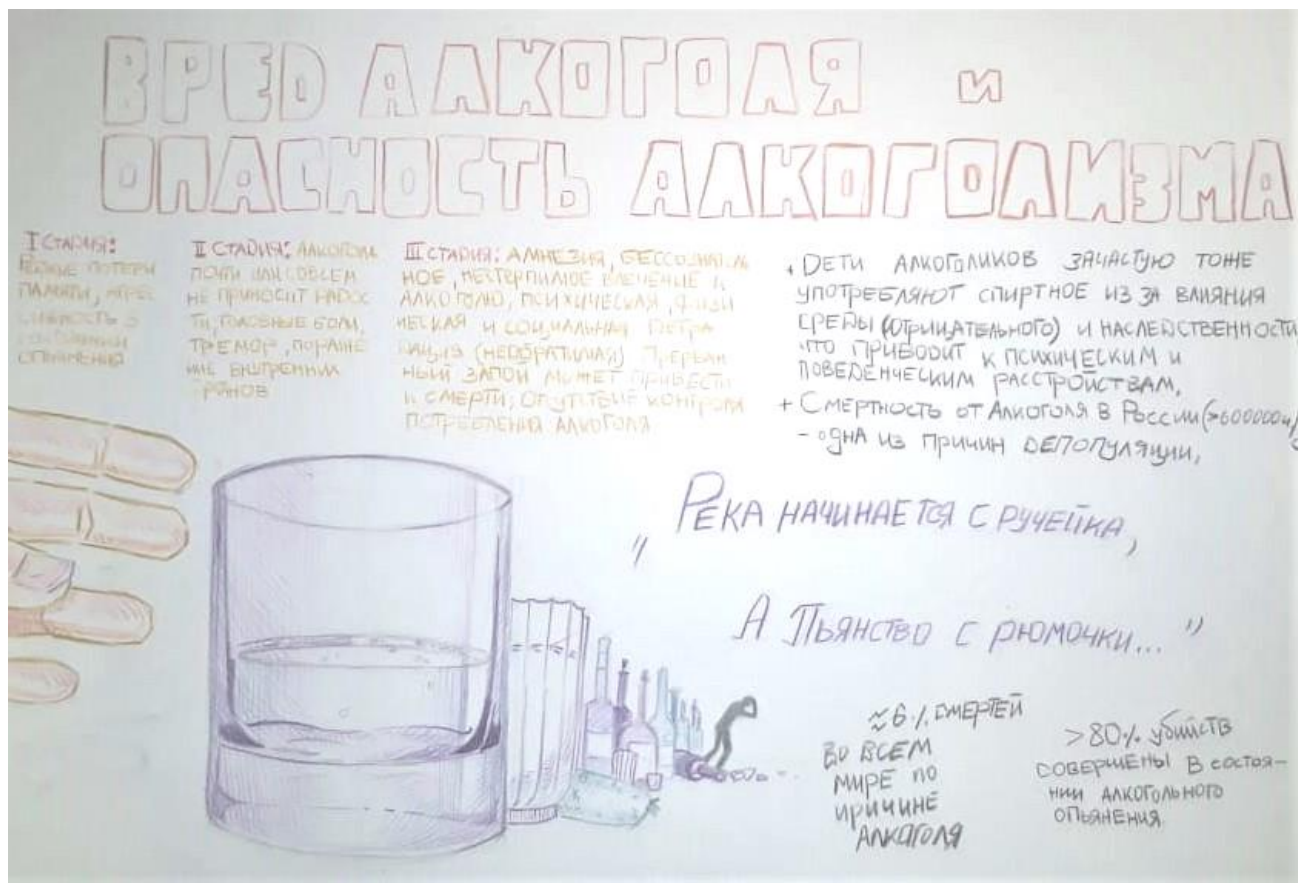 ВРЕД АЛКОГОЛЯ и
ОПАСНОСТЬ АЛКОГОЛИЗМА
I СТАДИЯ:
ПОТЕРИ
ПАМЯТИ,
ОПЬЯНЕНИЯ
II СТАДИЯ: АЛКОГОЛЬ
ПОЧТИ ИЛИ СОВСЕМ
НЕ ПРИНОСИТ РАДОС
ТИ, ГОЛОВНЫЕ БОЛИ,
ТРЕМОР, ПОРАЖЕ
НИЕ ВНУТРЕННИХ
ОРГАНОВ
III СТАДИЯ: АМНЕЗИЯ, БЕССОЗНАТЕЛЬ
НОЕ, НЕСТЕРПИМОЕ ВЛЕЧЕНИЕ К
АЛКОГОЛЮ, ПСИХИЧЕСКАЯ, ФИЗИ
ЧЕСКАЯ И СОЦИАЛЬНАЯ ДЕГРА
ДАЦИЯ (НЕОБРАТИМАЯ) ПРЕРВАН
НЫЙ ЗАПОЙ МОЖЕТ ПРИВЕСТИ
К СМЕРТИ; ОТСУТСТВИЕ КОНТРОЛЯ
ПОТРЕБЛЕНИЯ АЛКОГОЛЯ
+ ДЕТИ АЛКОГОЛИКОВ ЗАЧАСТУЮ ТОЖЕ
УПОТРЕБЛЯЮТ СПИРТНОЕ ИЗ ЗА ВЛИЯНИЯ
СРЕДЫ (ОТРИЦАТЕЛЬНОГО) И НАСЛЕДСТВЕННОСТИ
ЧТО ПРИВОДИТ К ПСИХИЧЕСКИМ И
ПОВЕДЕНЧЕСКИМ РАССТРОЙСТВАМ,
+ СМЕРТНОСТЬ ОТ АЛКОГОЛЯ В РОССИИ (>600000ч)
- ОДНА ИЗ ПРИЧИН ДЕПОПУЛЯЦИИ,
„ РЕКА НАЧИНАЕТСЯ С РУЧЕЙКА,
А ПЬЯНСТВО С РЮМОЧКИ... "
≈6% СМЕРТЕЙ
ВО ВСЕМ
МИРЕ ПО
ПРИЧИНЕ
АЛКОГОЛЯ
>80% убийств
СОВЕРШЕНЫ В СОСТОЯ-
НИИ АЛКОГОЛЬНОГО
ОПЬЯНЕНИЯ